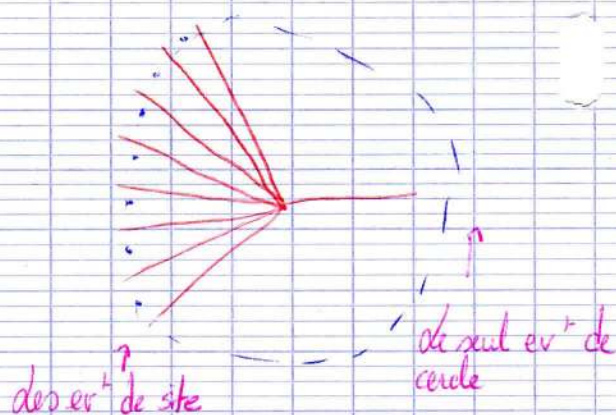 Le seul evt de
cercle
Les evt de site